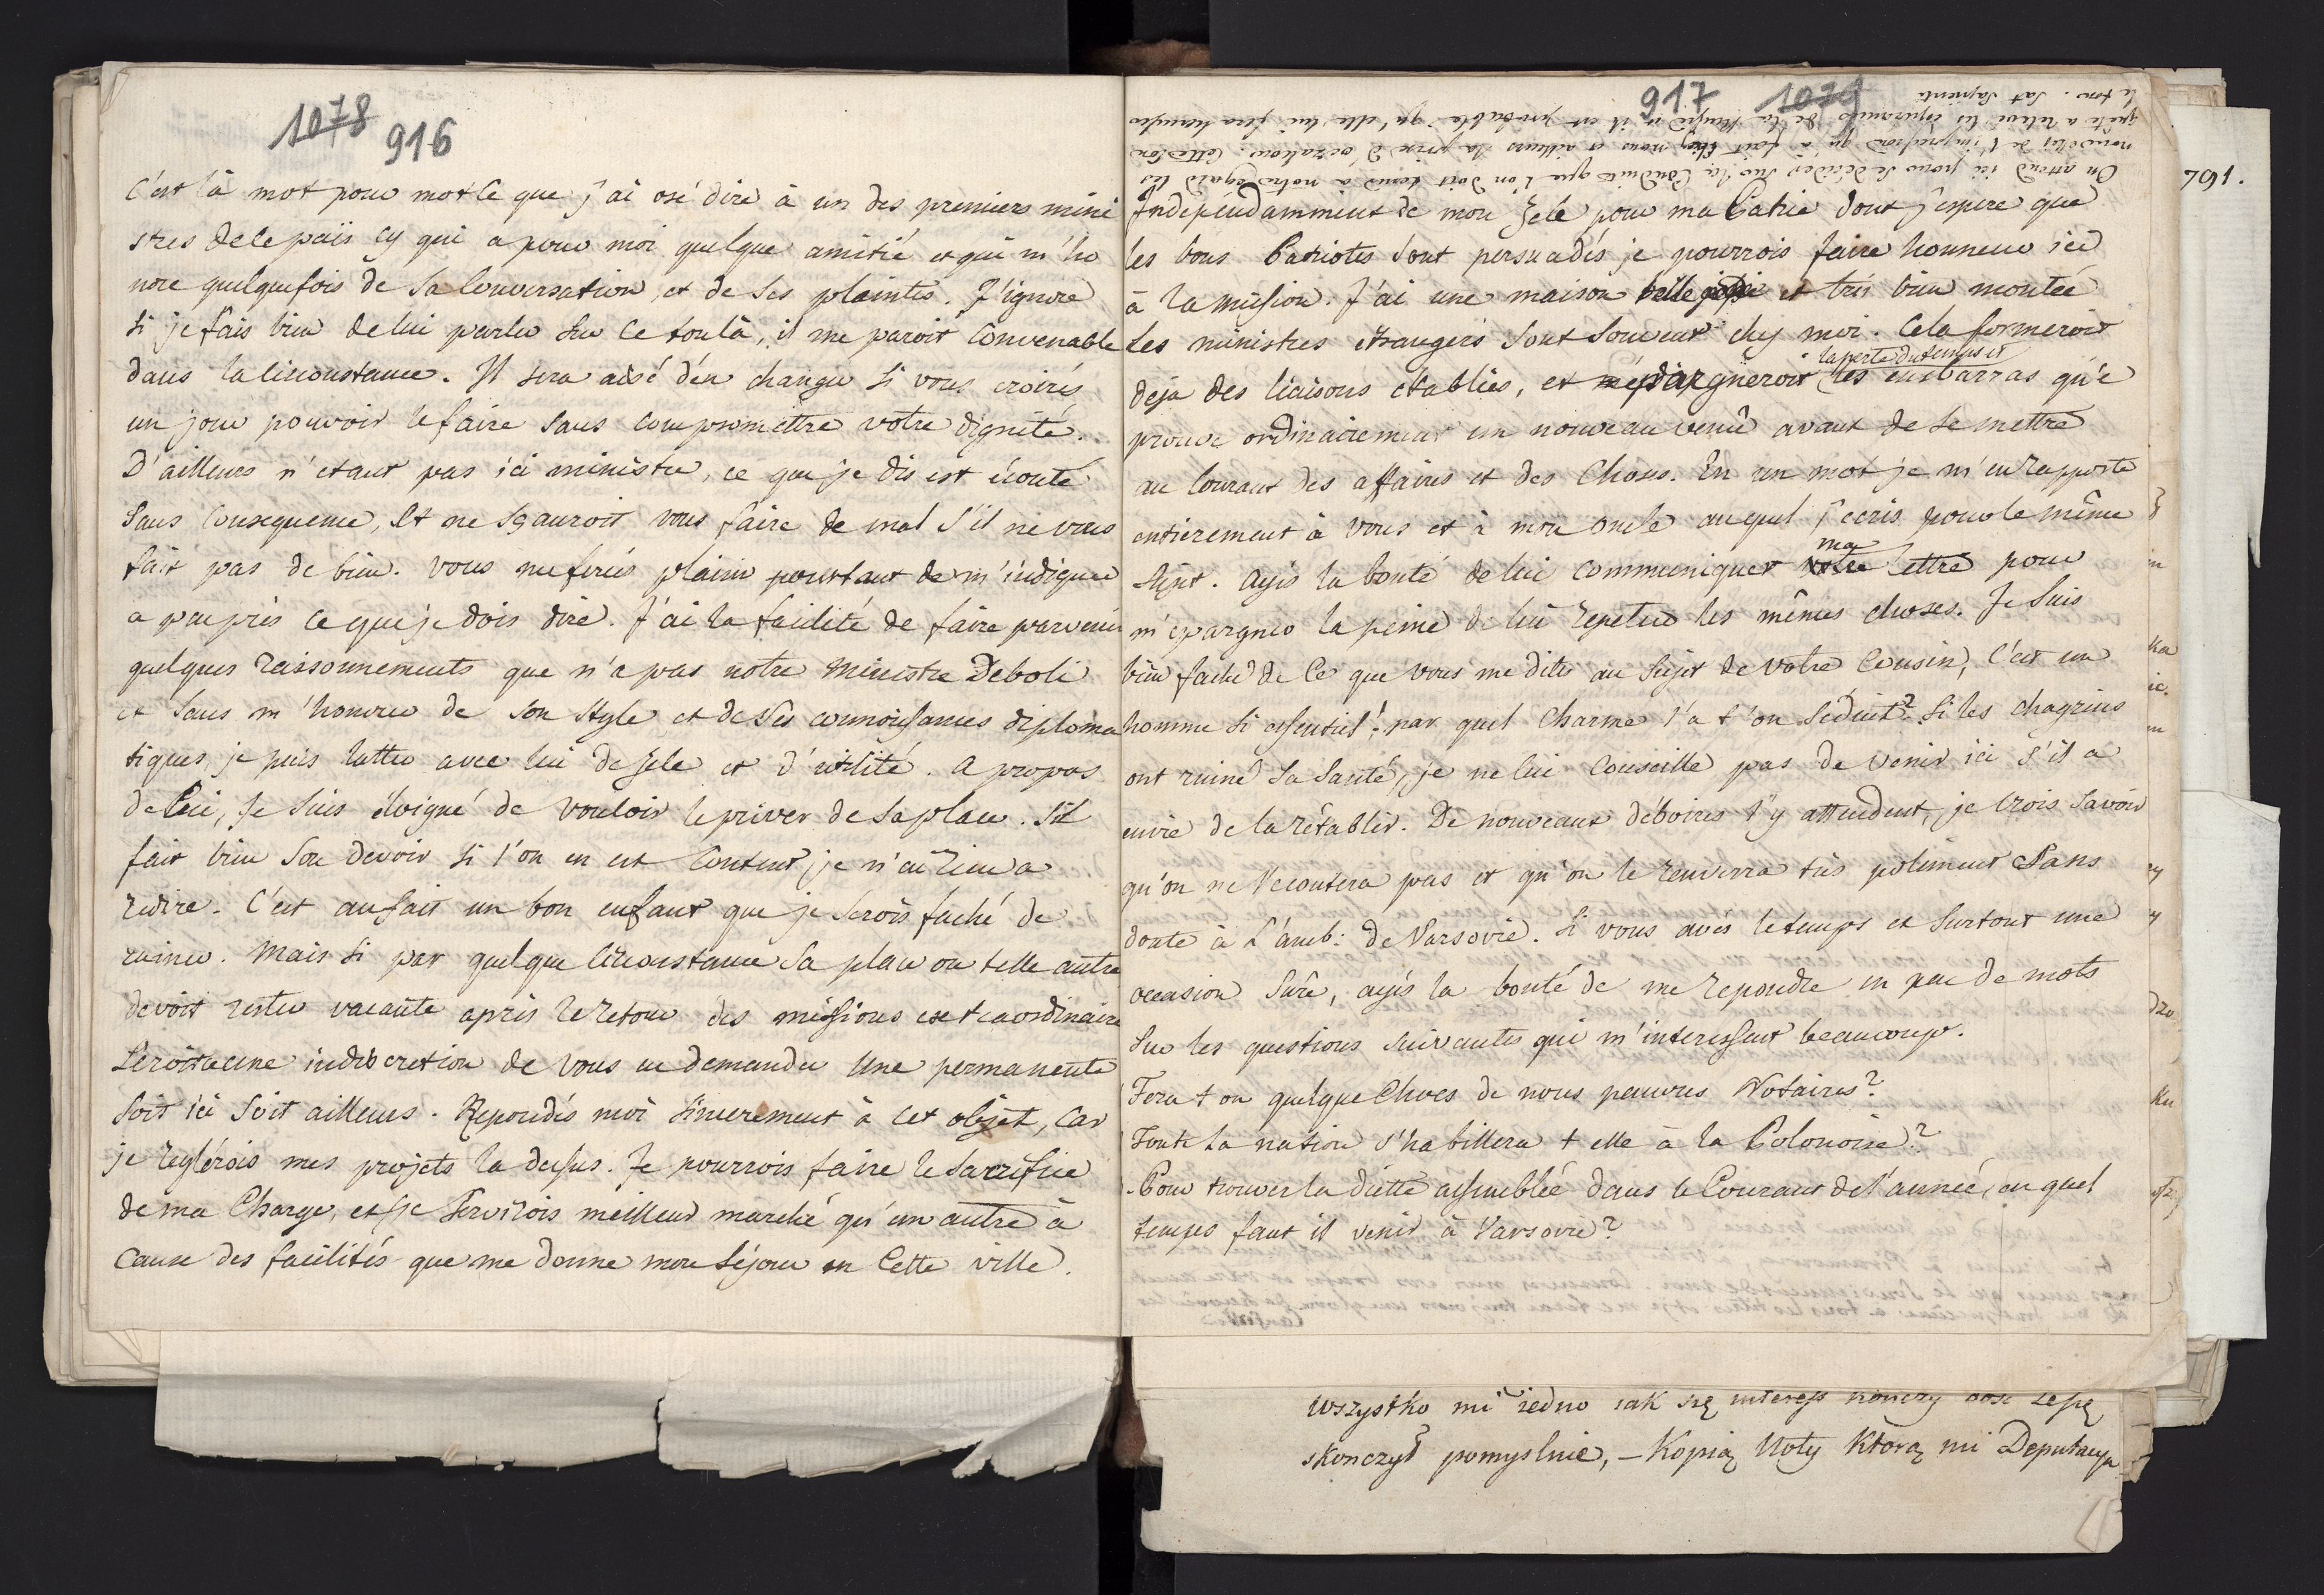 1078 916
C'est là mot pour mot ce que j'ai osé dire à un des premiers mini
stres de ce païs cy qui a pour moi quelque amitié et qui m'ho
nore quelquefois de sa conversation, et de ses plaintes. J'ignore
si je fais bien de lui parler sur ce ton là, il me paroit convenable
dans la circonstance. Il sera aisé d'en changer si vous croirés
un jour pouvoir le faire sans compromettre votre dignité.
D'ailleurs n'etant pas ici ministre, ce que je dis est écouté
sans consequence, et ne sçauroit vous faire de mal s'il ne vous
fait pas de bien. Vous me feriés plaisir pourtant de m'indiquer
a peu près ce que je dois dire. J'ai la facilité de faire parvenir
quelques raissonnements que n'a pas notre Ministre Deboli
et sans m'honorer de son style et de ses connoissances diploma
tiques, je puis lutter avec lui de zele et d'utilité. A propos
de lui, je suis éloigné de vouloir le priver de sa place. S'il
fait bien son devoir si l'on en est content, je n'ai rien a
redire. C'est au fait un bon enfant que je serois faché de
ruiner. Mais si par quelque circonstance sa place ou telle autre
devoit rester vacante après le retour des missions extraordinaire
seroit ce une indiscretion de vous en demander une permanente
soit ici soit ailleurs. Repondés moi sincerement à cet objet, car
je reglérois mes projets la dessus. Je pourrois faire le sacrifice
de ma charge, et je servirois meilleur marché qu'un autre à
cause des facilités que me donne mon séjour en cette ville.
917 1079
On attend ici pour se décider sur la conduite que l'on doit tenir à notre egard les
nouvelles de l'impression qu'à fait chez nous et ailleurs la prise d'Oczakow. Cette con
quête a relevé les esperances de la Russie et il est probable qu'elle lui fera hausser
le ton. Sat sapienti
791.
Independamment de mon zele pour ma Patrie dont j'espere que
les bons Patriotes sont persuadés je pourrois faire honneur ici
à la mission. J'ai une maison belle et très bien montée
Les ministres étrangers sont souvent chez moi. Cela formeroit
la perte du temps et
deja des liaisons etablies, et m'épargneroit les embarras qu'é
prouve ordinairement un nouveau venû avant de se mettre
au courant des affaires et des choses. En un mot je m'en rapporte
entierement à vous et à mon oncle auquel j'ecris pour le même
ma
sujet. Ayés la bonté de lui communiquer votre lettre pour
m'epargner la peine de lui repeter les mêmes choses. Je suis
bien faché de ce que vous me dites au sujet de votre Cousin, c'est un
homme si essentiel! par quel charme l'a t'on séduit? Si les chagrins
ont ruiné sa santé, je ne lui conseille pas de venir ici s'il a
envie de la rétablir. De nouveaux déboires l'y attendent, je crois savoir
qu'on ne l'ecoutera pas et qu'on le renverra très poliment sans
doute à l'amb: de Varsovie. Si vous avés le temps et surtout une
occasion sûre, ayés la bonté de me repondre en peu de mots
sur les questions suivantes qui m'interessent beaucoup.
Fera t on quelque choes de nous pauvres Notaires?
Toute la nation s'habillera t elle à la Polonoise?
Pour trouver la diette assemblée dans le courant de l'année, en quel
temps faut il venir à Varsovie?
wszystko mi iedno iak się interess konczy
skonczył pomyslnie, – Kopią Noty Ktorą mi Deputacya